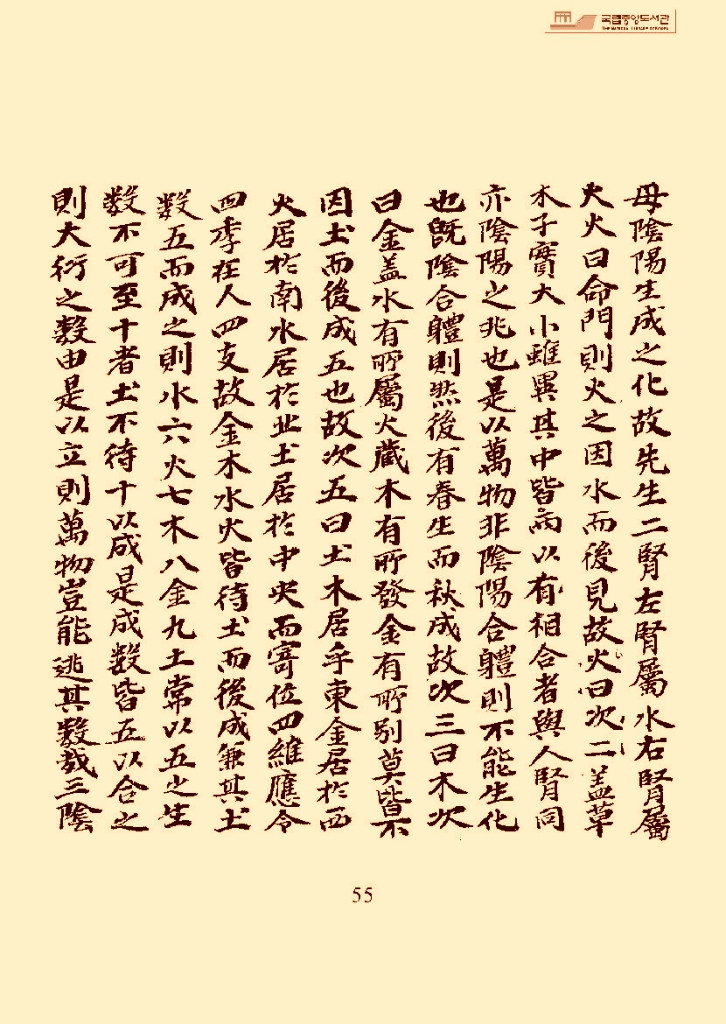 국립중앙도서관
THE NATIONAL LIBRARY OF KOREA
母陰陽生成之化故先生二腎左腎屬水右腎屬
火火曰命門則火之因水而後見故火曰次二蓋草
木子實大小雖異其中皆兩以有相合者與人腎同
亦陰陽之兆也是以萬物非陰陽合體則不能生化
也旣陰合體則然後有春生而秋成故次三曰木次
曰金蓋水有所屬火藏木有所發金有所別莫皆不
因土而後成五也故次五曰土木居乎東金居於西
火居於南水居於北土居於中央而寄位四維應令
四季在人四支故金木水火皆待土而後成兼其土
數五而成之則水六火七木八金九土常以五之生
數不可至十者土不待十以成是成數皆五以合之
則大衍之數由是以立則萬物豈能逃其數哉三陰
55